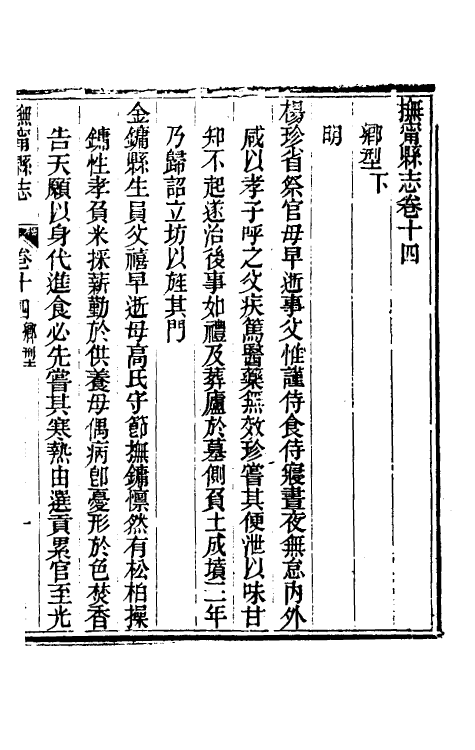 撫寧縣志卷十四
鄉型下
明
楊珍省祭官母早逝事父惟謹侍食侍寢晝夜無怠內外
咸以孝子呼之父疾篤醫藥無效珍嘗其便泄以味甘
知不起遂治後事如禮及葬廬於墓側負土成墳三年
乃歸詔立坊以旌其門
金鏞縣生員父禧早逝母高氏守節撫鏞懍然有松柏操
鏞性孝負米採薪勤於供養母偶病卽憂形於色焚香
告天願以身代進食必先嘗其寒熱由選貢累官至光
撫寧縣志 卷十四 鄉型 一